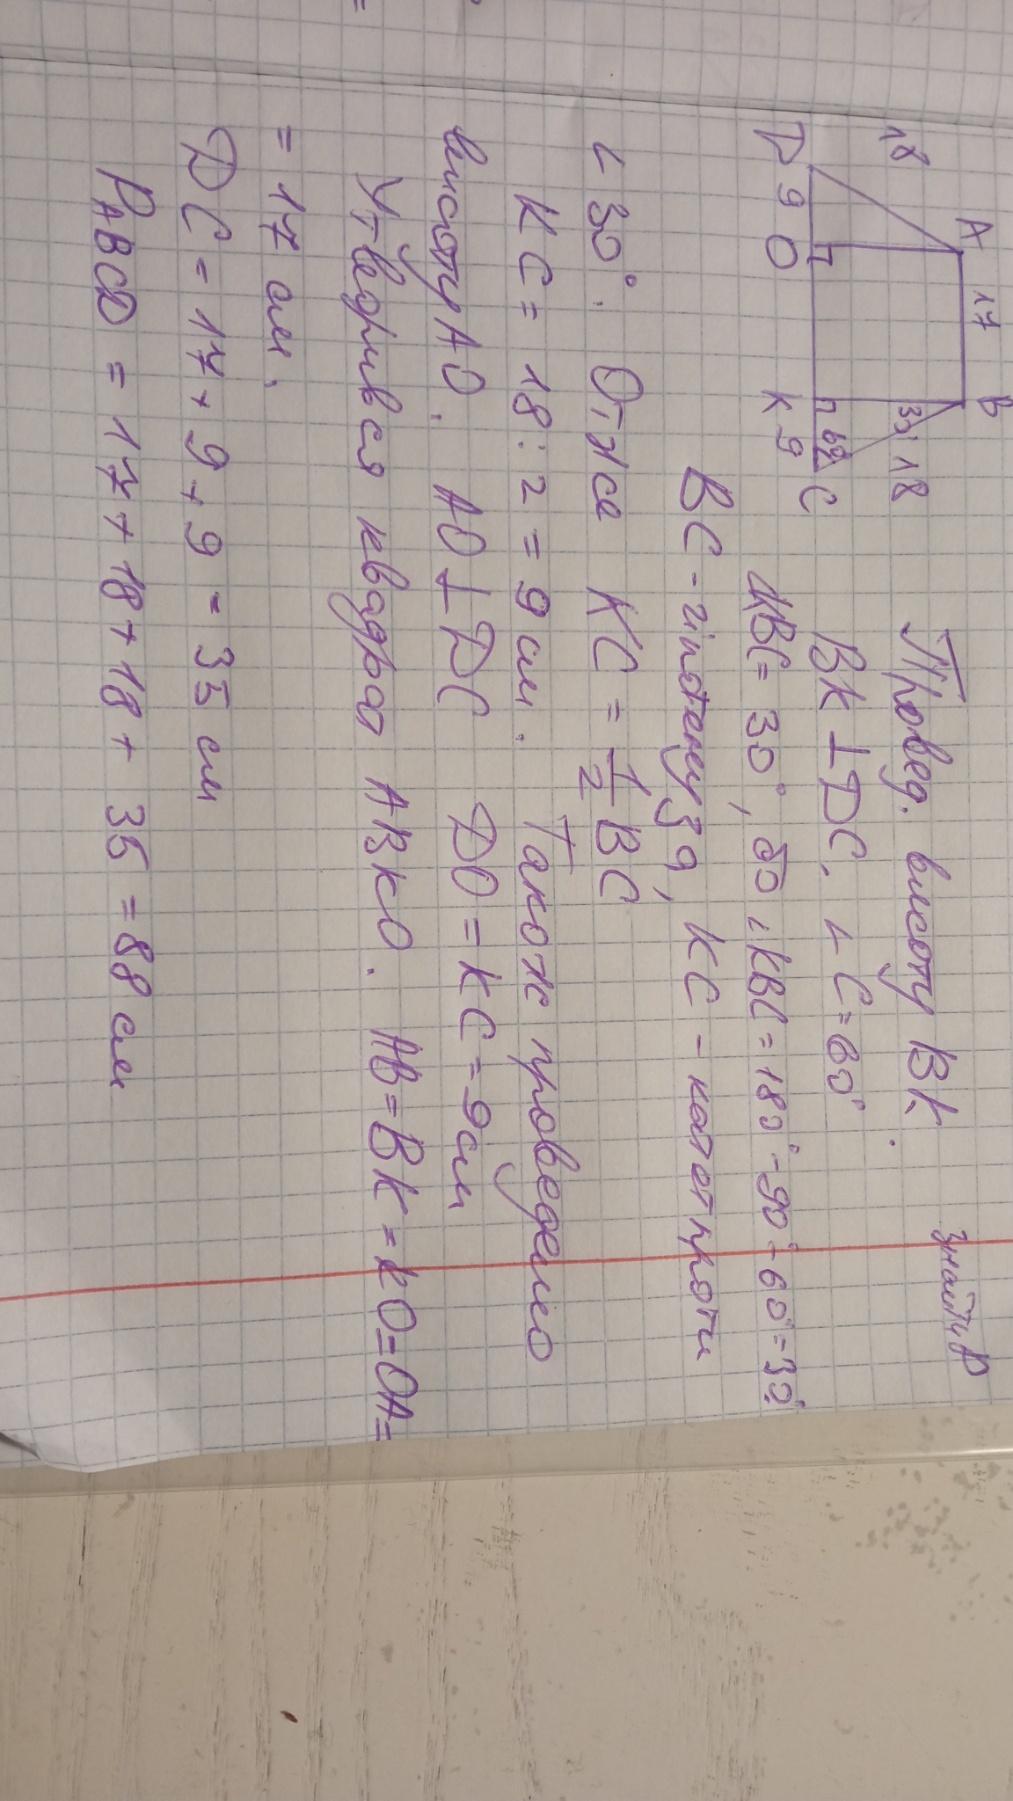 знайти P
A 17 B
18 30° 18
60°
D 9 O K 9 C
Провед. висоту BK.
BK ⊥ DC. ∠C = 60°
KBC = 30°, бо ∠KBC = 180° - 90° - 60° = 30°
BC - гіпотенуза, KC - катет проти
∠ 30°. Отже KC = 1/2 BC
KC = 18 : 2 = 9 см. Також проведемо
висоту AO. AO ⊥ DC DO = KC = 9 см
Утворився квадрат ABKO. AB = BK = KO = OA =
= 17 см.
DC = 17 + 9 + 9 = 35 см
PABCD = 17 + 18 + 18 + 35 = 88 см